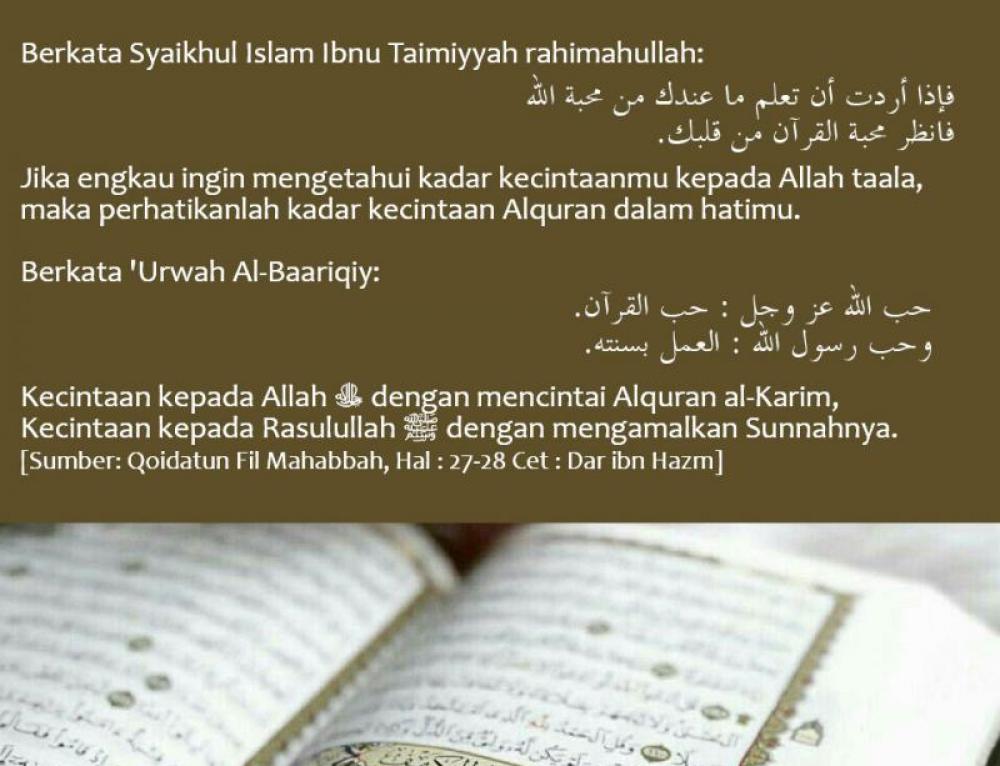 Berkata Syaikhul Islam Ibnu Taimiyyah rahimahullah:
فإذا أردت أن تعلم ما عندك من محبة الله
فانظر محبة القرآن من قلبك.
Jika engkau ingin mengetahui kadar kecintaanmu kepada Allah taala,
maka perhatikanlah kadar kecintaan Alquran dalam hatimu.
Berkata 'Urwah Al-Baariqiy:
حب الله عز وجل : حب القرآن.
وحب رسول الله : العمل بسنته.
Kecintaan kepada Allah ﷻ dengan mencintai Alquran al-Karim,
Kecintaan kepada Rasulullah ﷺ dengan mengamalkan Sunnahnya.
[Sumber: Qoidatun Fil Mahabbah, Hal : 27-28 Cet : Dar ibn Hazm]